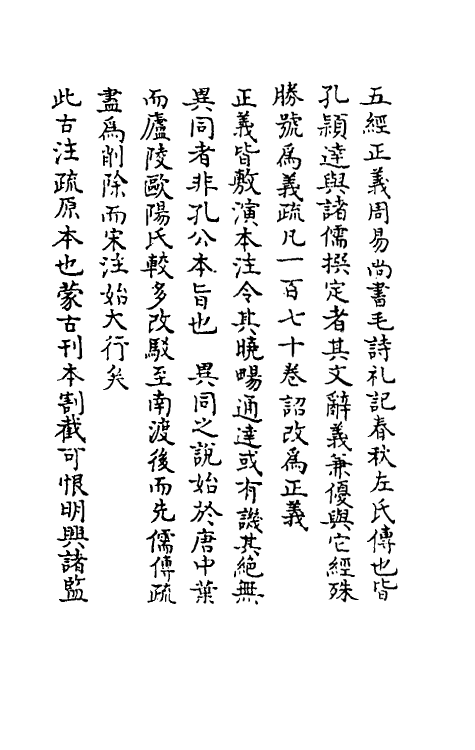 五經正義周易尚書毛詩礼記春秋左氏傳也皆
孔穎達與諸儒撰定者其文辭義兼優與它經殊
勝號為義疏凡一百七十卷詔改為正義
正義皆敷演本注令其曉暢通達或有譏其絕無
異同者非孔公本旨也　異同之說始於唐中葉
而廬陵歐陽氏較多改駁至南渡後而先儒傳疏
盡爲削除而宋注始大行矣
此古注疏原本也蒙古刊本割截可恨明興諸監